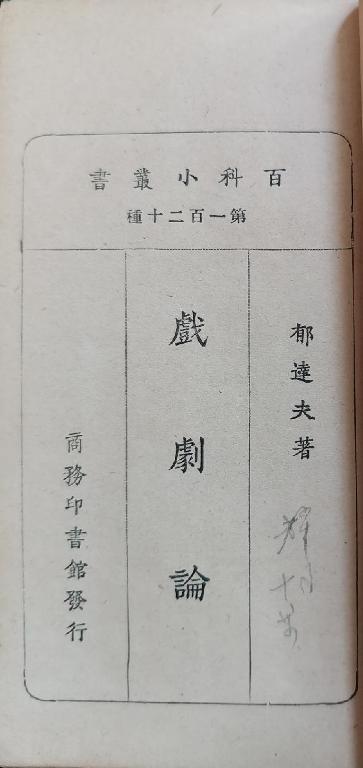 百科小叢書
第一百二十種
郁達夫著
戲劇論
商務印書館發行